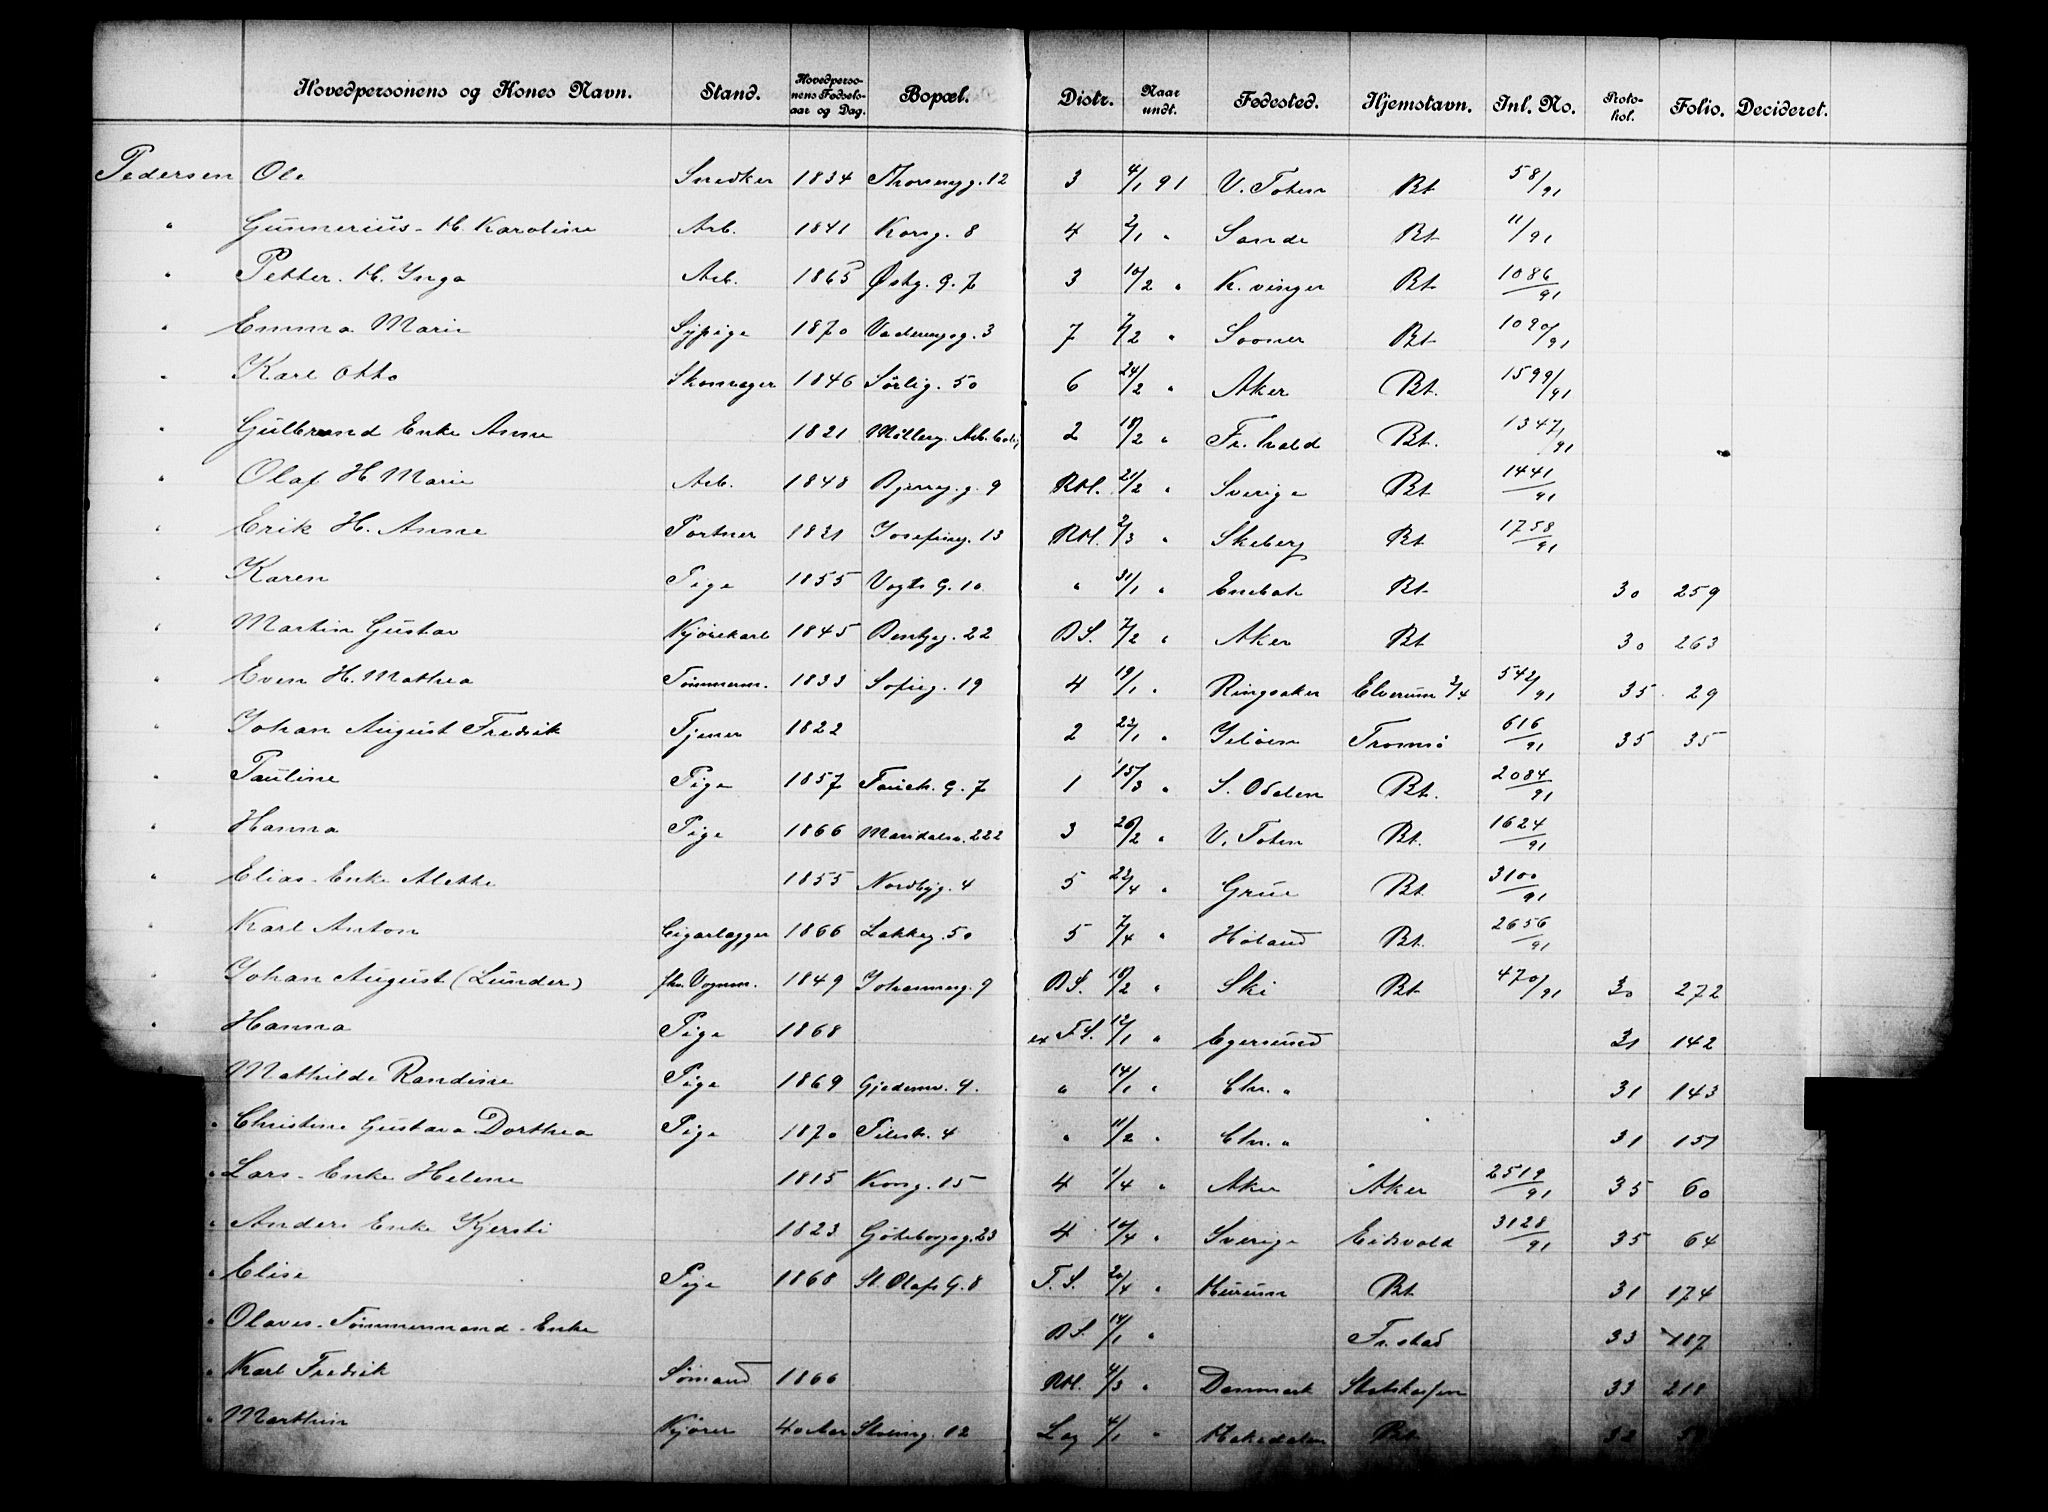 Hovedpersonens og Kones Navn. Stand. Hovedperso-nens Fødsels-aar og Dag. Bopæl. Distr. Naar undt. Fødested. Hjemstavn. Inl. No. Proto-kol. Folio. Decideret.
Pedersen Ole Snedker 1834 12 3 4/1 91 V. Toten Bt 58/91
" Gunnerius - H. Karoline Arb. 1841 Korsg. 8 4 2/1 " Sande Bt 11/91
" Petter. H. Inga Arb. 1865 Østg. 9.7 3 10/2 " K. vinger Bt 1086/91
" Emma Marie Sypige 1870 3 7 7/2 " Sooner Bt 1090/91
" Karl Otto Skomager 1846 Sörlig. 50 6 24/2 " Aker Bt. 1599/91
" Gulbrand Enke Anne 1821 Möllerg. Arb. bolig 2 18/2 " Fr. hald Bt. 1347/91
" Olaf H Marie Arb. 1848 9 RH. 21/2 " Sverige Bt 1441/91
" Erik H. Anne Portner 1831 Josefineg. 13 RH. 2/3 " Skeberg Bt 1758/91
" Karen Pige 1855 Vogts G. 10 " 31/1 " Enebak Bt 30 259
" Martin Gustav Kjörekarl 1845 Bentseg. 22 BS. 7/2 " Aker Bt 30 263
" Even H. Mathea Tømmerm. 1833 Sofieg. 19 4 19/1 " Ringsaker Elverum 2/4 542/91 35 29
" Johan August Fredrik Tjener 1822 2 22/1 " Jelöen Tromsö 616/91 35 35
" Pauline Pige 1857 Fauch. G. 7 1 15/3 " S. Odalen Bt. 2084/91
" Hanna Pige 1866 Maridalsv. 222 3 26/2 " V. Toten Bt. 1624/91
" Elias - Enke Alette 1855 Nordbyg. 4 5 22/4 " Grue Bt 3100/91
" Karl Anton Cigarlægger 1866 Lakkeg. 50 5 7/4 " Höland Bt. 2656/91
" Johan August (Lunder) fhv. Vognm. 1849 Johannesg. 9 BS. 18/2 " Ski Bt 470/91 30 272
" Hanna Pige 1868 ex FS. 12/1 " Egersund 31 142
Mathilde Randine Pige 1869 Gjedemv. 9. " 14/1 " Chr. a 31 143
" Christine Gustava Dorthea Pige 1870 Pilestr. 4 " 11/2 " Chr. a 31 151
" Lars - Enke Helene 1815 Korsg. 15 4 1/4 " Aker Aker 2519/91 35 60
" Anders Enke Kjersti 1823 Göteborgsg. 23 4 10/4 " Sverige Eidsvold 3128/91 35 64
" Elise Pige 1868 St. Olafs G. 8 T. S. 20/4 " Hurum Bt 31 174
" Olaves - Tömmermand - Enke BS. 14/1 " Fr. stad 33 187
" Karl Fredrik Sömand 1866 RH. 4/3 " Danmark Statskassen 33 218
" Marthin Kjörer 40 Aar 12 Leg 4/1 " Hakedalen Bt 32